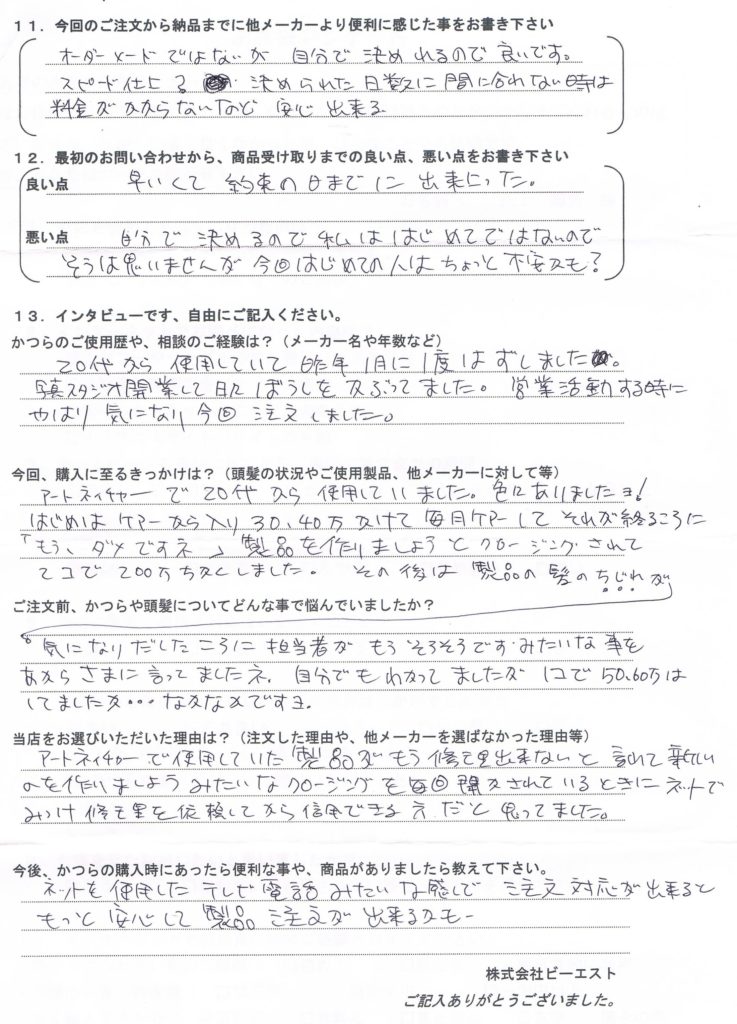 １１．今回のご注文から納品までに他メーカーより便利に感じた事をお書き下さい
オーダーメードではないが 自分で決めれるので良いです。
スピード仕上る 決められた日数に間に合れない時は
料金がかからないなど 安心出来る
１２．最初のお問い合わせから、商品受け取りまでの良い点、悪い点をお書き下さい
良い点 早いくて 約束の日までに 出来上った。
悪い点 自分で決めるので私ははじめてではないので
そうは思いませんが 今回はじめての人はちょっと不安かも？
１３．インタビューです、自由にご記入ください。
かつらのご使用歴や、相談のご経験は？（メーカー名や年数など）
20代から使用していて昨年1月に1度はずしました。
写真スタジオ開業して日々ぼうしをかぶってました。営業活動する時に
やはり気になり今回注文しました。
今回、購入に至るきっかけは？（頭髪の状況やご使用製品、他メーカーに対して等）
アートネイチャーで20代から使用していました。色々ありましたヨ！
はじめはケアーから入り30、40万かけて毎月ケアーしてそれが終るころに
「もう、ダメですネ」製品を作りましょうとクロージングされて
2コで200万ちかくしました。その後は製品の髪のちじれが
ご注文前、かつらや頭髪についてどんな事で悩んでいましたか？
気になりだしたころに担当者がもうそろそろです・みたいな事を
あからさまに言ってましたネ。自分でもわかってましたが1コで50、60万は
してましたか・・・なかなかですヨ。
当店をお選びいただいた理由は？（注文した理由や、他メーカーを選ばなかった理由等）
アートネイチャーで使用していた製品がもう修理出来ないと言われて新しい
のを作りましょうみたいなクロージングを毎回聞かされているときにネットで
みつけ修理を依頼してから信用できるネだと思ってました。
今後、かつらの購入時にあったら便利な事や、商品がありましたら教えて下さい。
ネットを使用したテレビ電話みたいな感じで注文対応が出来ると
もっと安心して製品注文が出来るかもー
株式会社ビーエスト
ご記入ありがとうございました。